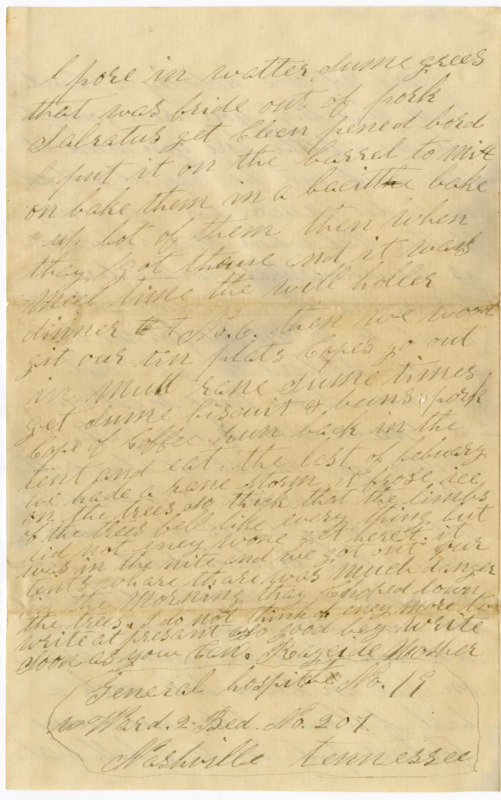 I pore in watter sume grees
that was bride out of pork
Salratus get Cleen pened bord
put it on the barrel to mix
on bake them in a bacittle bake
up lot of them then when
thay got thrue and it was
meel time the will holler
dinner No. 6. then we wood
git our tin plats Copes go out
in mud rane sume times
get sume biscuit & beans pork
Cope of Coffee run back in the
tent and eat. the last of febuary
we had a rane storm it frose ice
on the trees so thick that the limbs
of the trees fell like every thing but
did not eney wone get hert. it
was in the nite and we got out our
tents whare thare was much danger
in the Morning thay Choped down
the trees. I do not think of eney more to
write at present so good bey write
soon as you Can. Mother
General hospittle No. 19
Ward. 2. Bed. No. 207.
Nashville tennessee